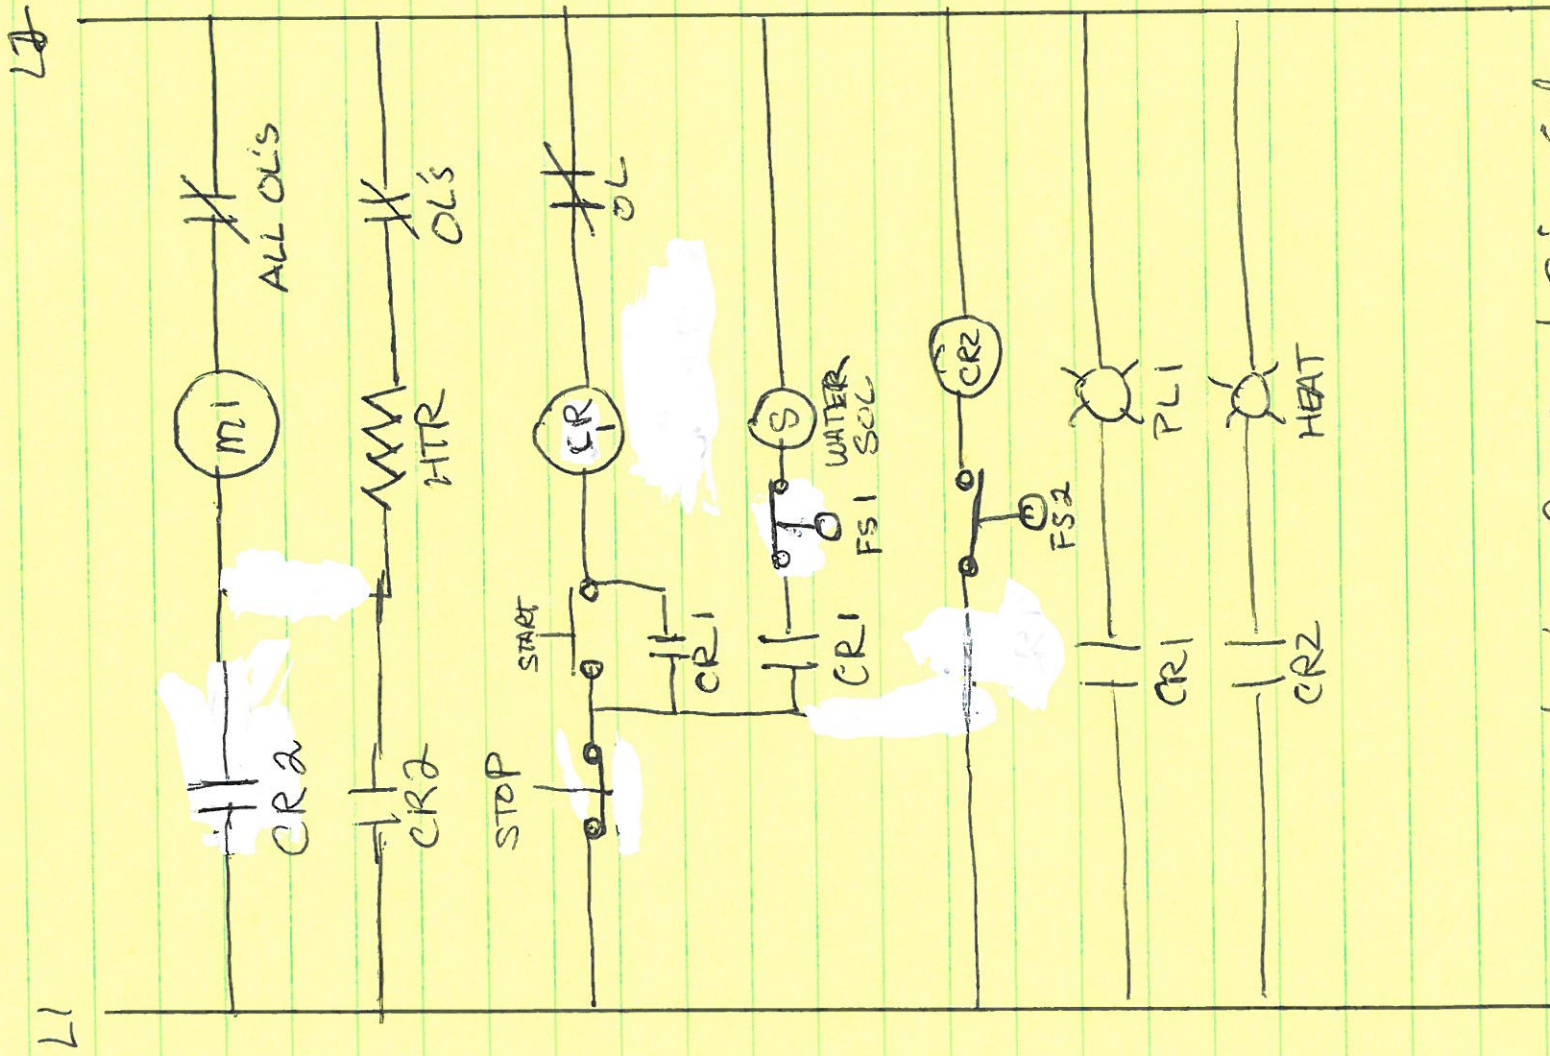 L1
L2
CR2
M1
ALL OL'S
CR2
HTR
OL'S
STOP
START
CR1
OL
CR1
CR1
S
WATER
SOL
FS1
CR2
FS2
CR1
PL1
CR2
HEAT